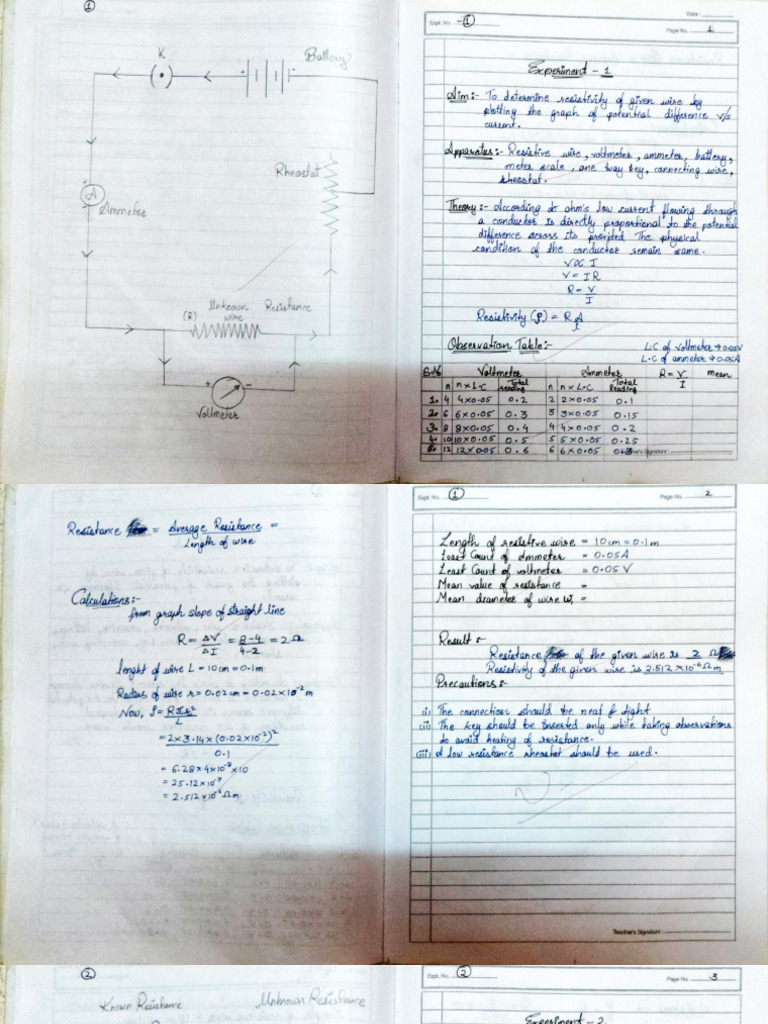 ①
K
Battery
Rheostat
+
A
-
Ammeter
Unknown Resistance
(R) wire
+
-
Voltmeter
Date :
Expt. No. ①
Page No. 1
Experiment - 1
Aim:- To determine resistivity of given wire by
plotting the graph of potential difference v/s
current.
Apparatus:- Resistive wire, voltmeter, ammeter, battery,
meter scale, one way key, connecting wire,
rheostat.
Theory:- According to ohm's low current flowing through
a conductor is directly proportional to the potential
difference across its provided The physical
condition of the conductor remain same.
V ∝ I
V = IR
R = V/I
Resistivity (ρ) = R A/L
Observation Table:-
L.C of voltmeter → 0.05V
L.C of ammeter → 0.05A
S.No Voltmeter Ammeter R = V/I mean
n n×L.C Total Reading n n×L.C Total Reading
1. 4 4×0.05 0.2 2 2×0.05 0.1
2. 6 6×0.05 0.3 3 3×0.05 0.15
3. 8 8×0.05 0.4 4 4×0.05 0.2
4. 10 10×0.05 0.5 5 5×0.05 0.25
5. 12 12×0.05 0.6 6 6×0.05 0.3
Resistance = Average Resistance / Length of wire =
Calculations:-
from graph slope of straight line
R = ΔV/ΔI = 8-4/4-2 = 2 Ω
lenght of wire L = 10cm = 0.1m
Radius of wire r = 0.02cm = 0.02×10⁻² m
Now, ρ = Rπr²/L
= 2×3.14×(0.02×10⁻²)²/0.1
= 6.28×4×10⁻⁸×10
= 25.12×10⁻⁷
= 2.512×10⁻⁶ Ωm
Expt. No. ①
Page No. 2
Length of resistive wire = 10cm = 0.1m
Least Count of Ammeter = 0.05A
Least Count of voltmeter = 0.05 V
Mean value of resistance =
Mean diameter of wire =
Result:-
Resistance of the given wire is 2 Ω
Resistivity of the given wire is 2.512×10⁻⁶Ωm
Precautions:-
(i) The connection should be neat & tight
(ii) The key should be inserted only while taking observations
to avoid heating of resistance.
(iii) A low resistance rheostat should be used.
Teacher's Signature :
②
Known Resistance
Unknown Resistance
Expt. No. ②
Page No. 3
Experiment - 2